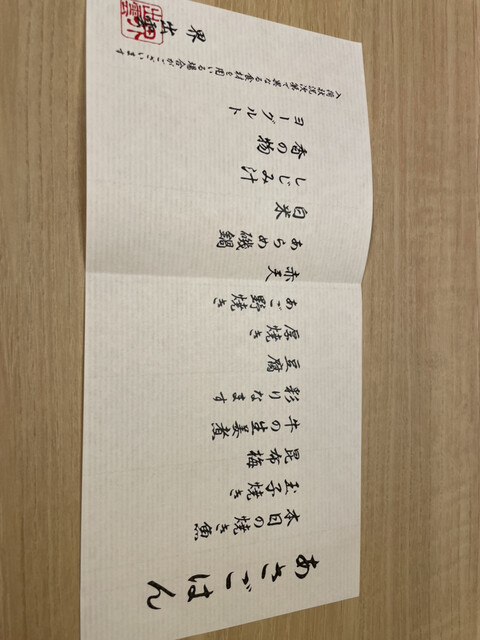 あさごはん
本日の焼き魚
玉子焼き
昆布梅
牛の生姜煮
彩りなます
豆腐
厚焼き
あご野焼き
赤天
あらめ磯鍋
白米
しじみ汁
香の物
ヨーグルト
入荷状況次第で異なる食材を用いる場合がございます
界 出雲
界出雲